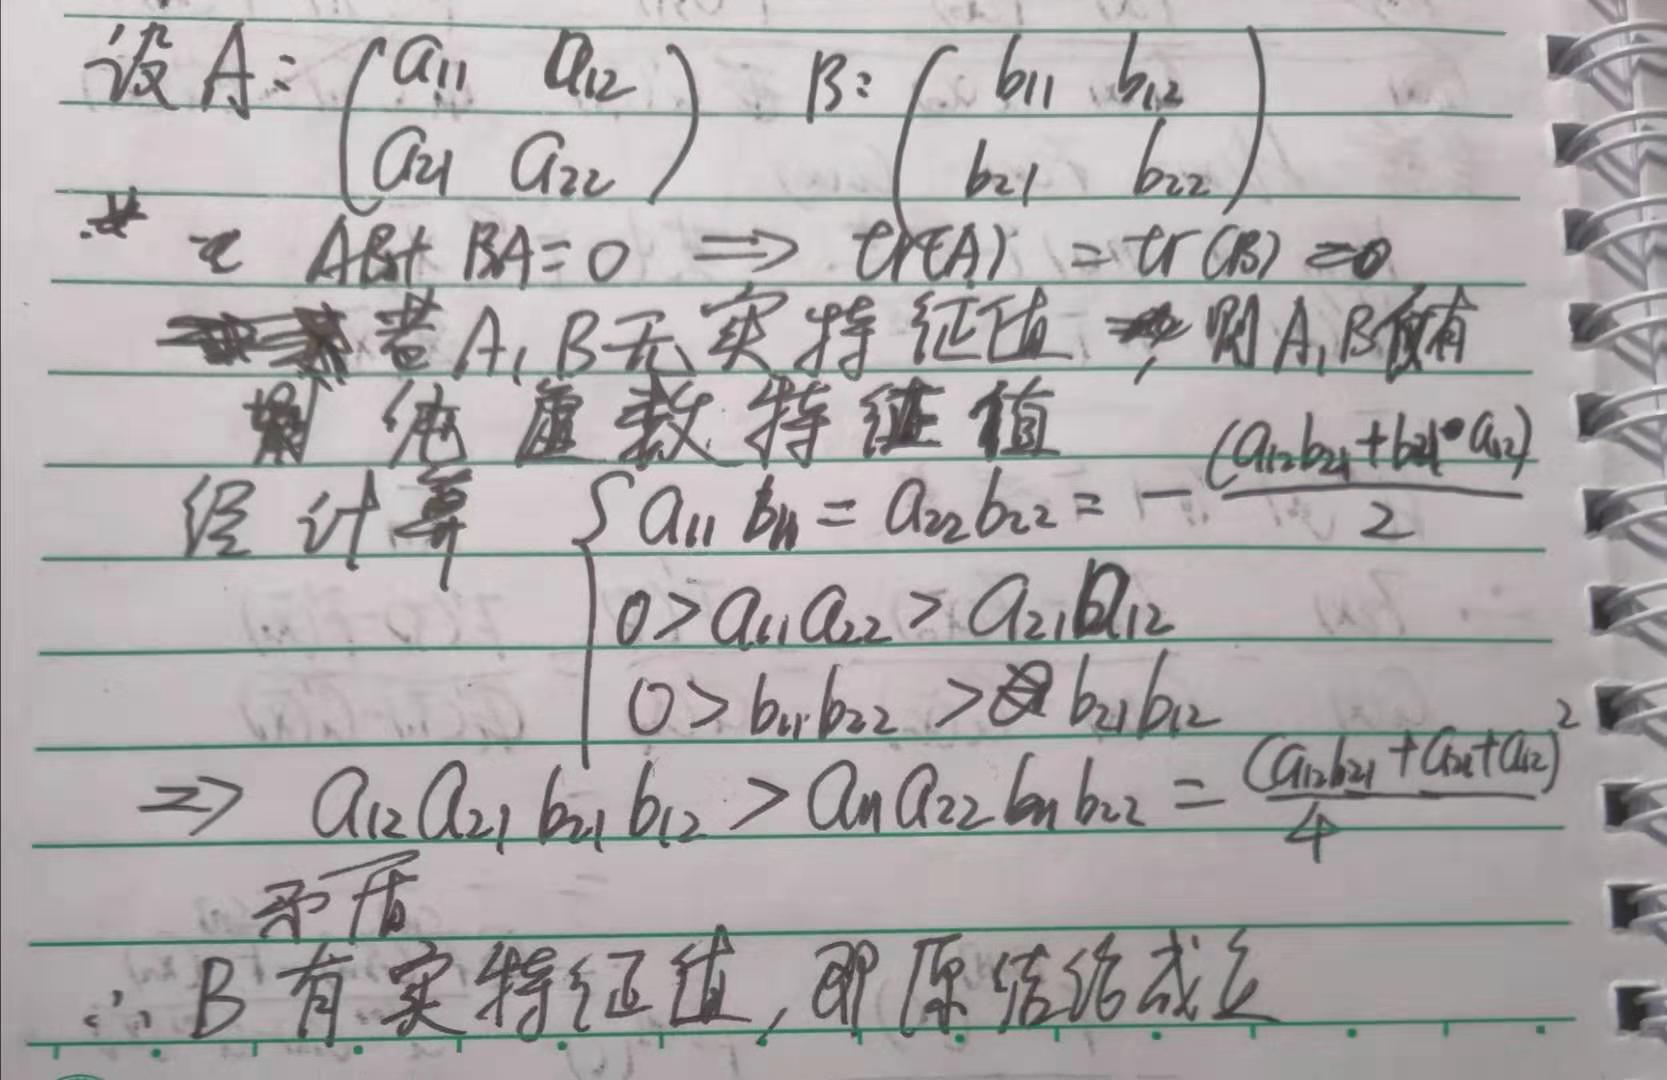 设A: (a₁₁ a₁₂ B: (b₁₁ b₁₂
a₂₁ a₂₂) b₂₁ b₂₂)
AB+BA=0 ⟹ tr(A) = tr(B) =0
若A,B无实特征值, 则A,B仅有
纯虚数特征值
经计算 { a₁₁b₁₁ = a₂₂b₂₂ = -(a₁₂b₂₁+b₂₁·a₁₂)/2
0>a₁₁a₂₂>a₂₁a₁₂
0>b₁₁b₂₂>b₂₁b₁₂
⟹ a₁₂a₂₁b₂₁b₁₂>a₁₁a₂₂b₁₁b₂₂=(a₁₂b₂₁+a₂₁+a₁₂)²/4
矛盾
∴B有实特征值,即原结论成立